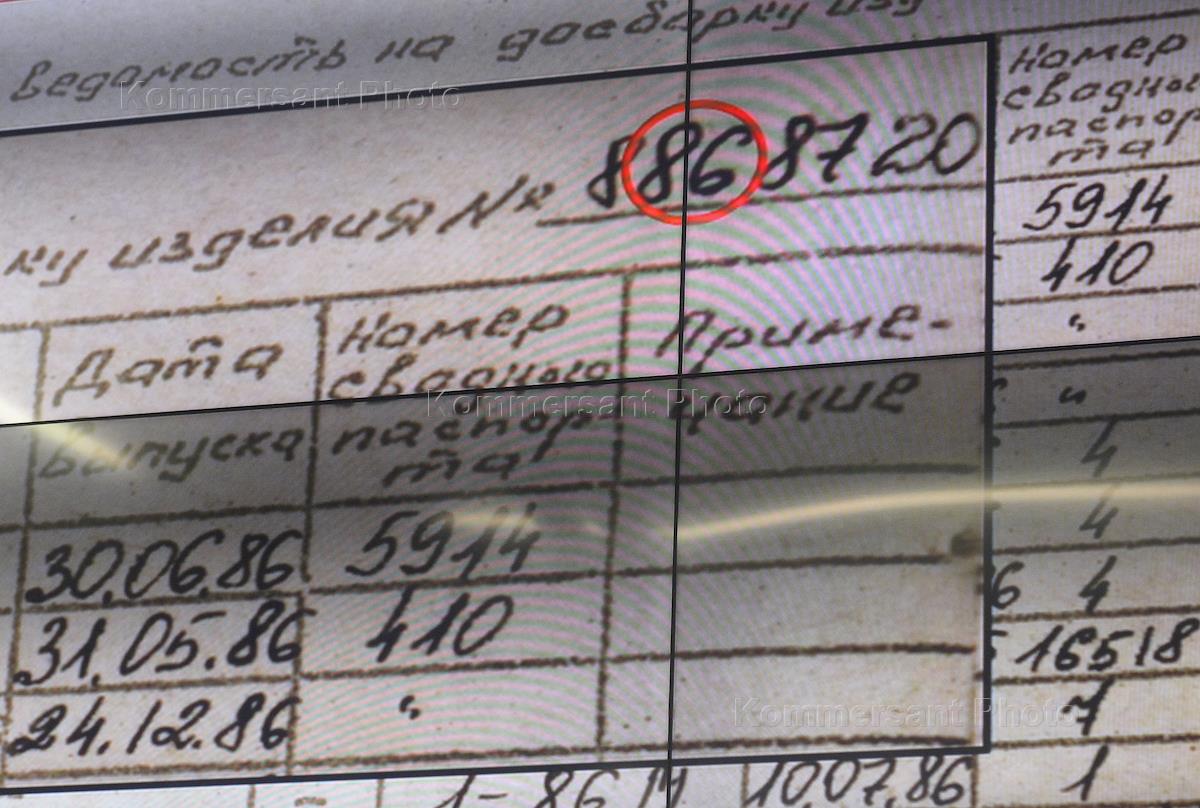 ведомость на досборку изд
ку изделия № 8868720
Дата
выпуска
Номер
сводного
паспор-
та
Приме-
чание
30.06.86 5914
31.05.86 410
24.12.86 "
Номер
сводного
паспор
та
5914
410
"
"
4
4
6 4
16518
7
1-86 10.07.86 1
Kommersant Photo
Kommersant Photo
Kommersant Photo